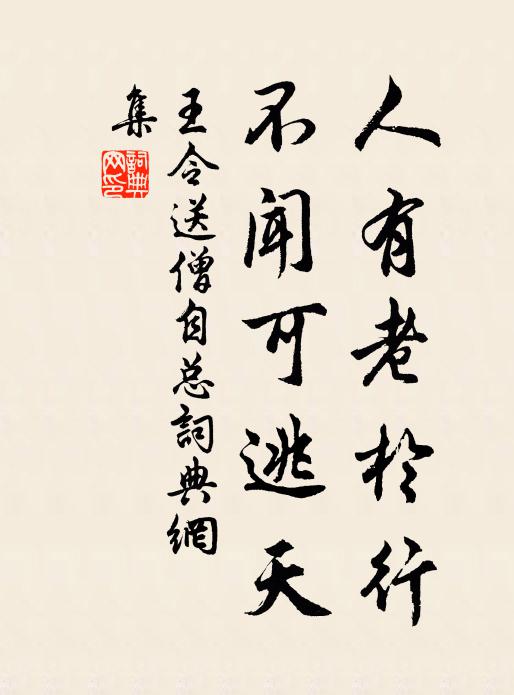 人有老於行
不聞可逃天
王令送僧自总詞典網
集
詞典网印